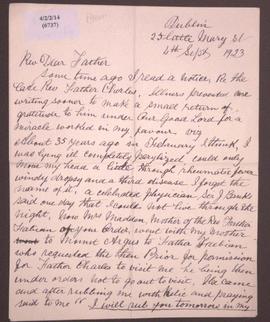 4/2/2/14
(6727)
Dublin
25 Little Mary St
4th Sept 1923
Rev Dear Father
Some time ago I read a notice Re the
late Rev Father Charles. Illness prevented me
writing sooner to make a small return of
gratitude to him under Our Good Lord for a
miracle worked in my favour viz
About 35 years ago in February I think, I
was lying ill completely paralized could only
move my head a little through rheumatic fever
windy dropsy and a third disease I forget the
name of it. A celebrated physician Sir J Banks
said one day that I could not live through the
night. Now Mrs Maddon Mother of the Rev Father
of your Order, went with my brother
to Mount Argus to Father
who requested the then Prior for permission
for Father Charles to visit me he being then
under orders not to go out to visit. He came
and after rubbing me with Relic and praying
said to me "I will rub you tomorrow in my